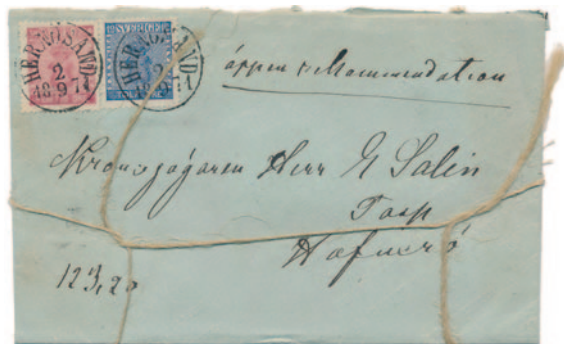 SVERIGE
HERNÖSAND
2
18 9 71
HERNÖSAND
2
18 9 71
öppen rekommendation
Kronojägaren Herr E Salin
Tasp
Hafverö
123,20